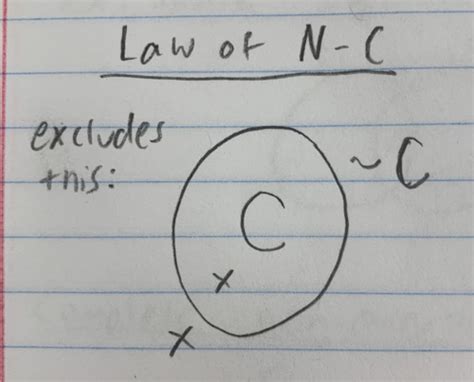 Law of N-C
excludes
this:
~C
C
x
x